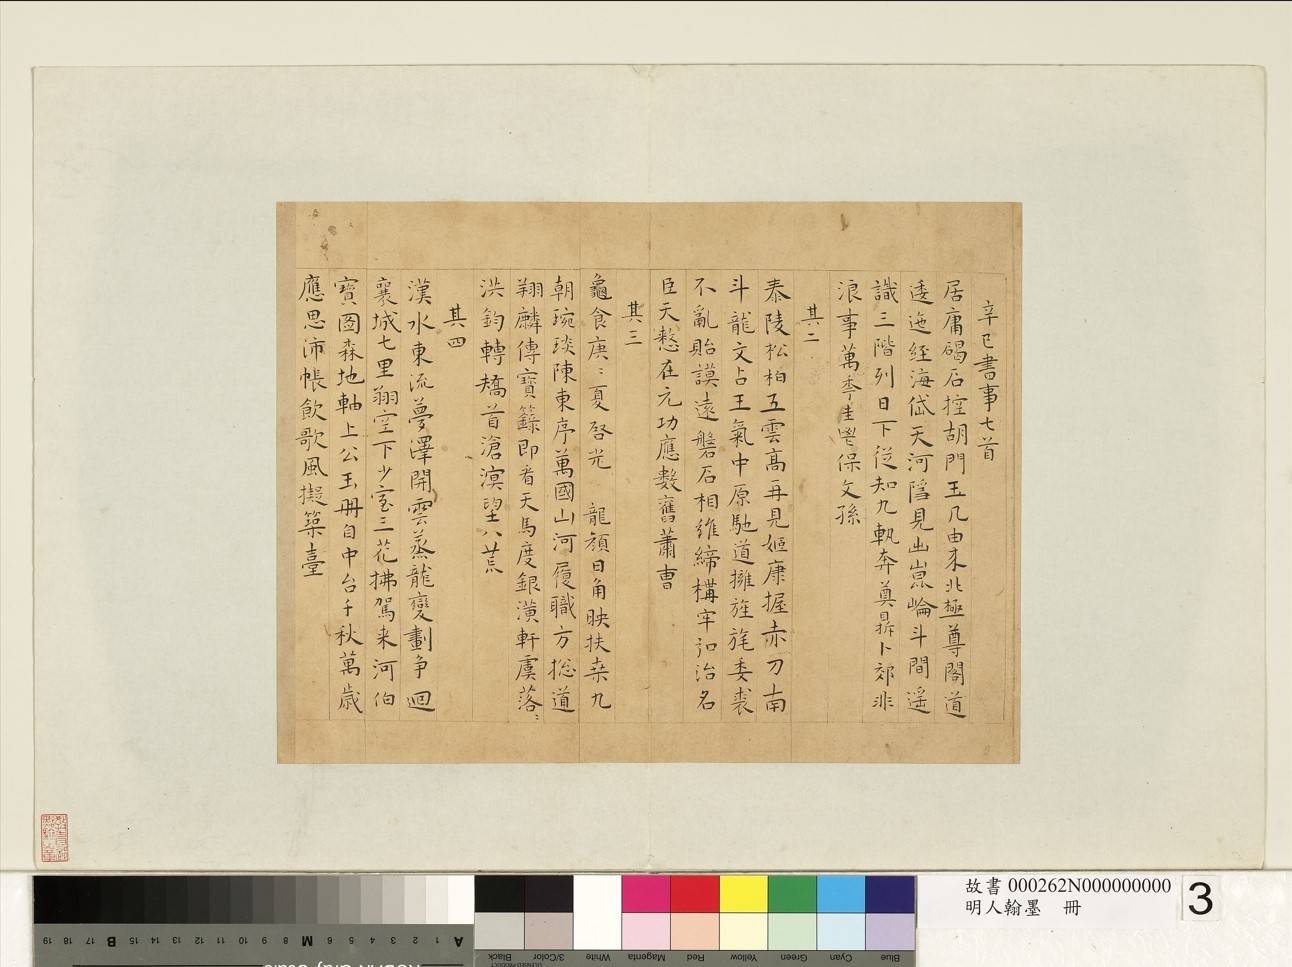 辛巳書事七首
居庸碣石控胡門玉几由来北極尊閣道
逶迤經海岱天河隱見出崑崙斗間遥
識三階列日下従知九軌奔奠鼎卜郊非
浪事萬季圭鬯保文孫
其二
泰陵松柏五雲髙再見姬康握赤刀南
斗龍文占王氣中原馳道擁旌旄委裘
不亂貽謨遠磐石相維締構牢訟治名
臣天憗在元功應數舊蕭曹
其三
龜食庚〻夏啓光 龍顔日角映扶桒九
朝琬琰陳東序萬國山河履職方捴道
翔麟傳寶籙即看天馬度銀潢軒虞落〻
洪鈞轉矯首滄溟望八荒
其四
漢水東流夢澤開雲蒸龍變劃争迴
襄城七里翔空下少室三花拂駕来河伯
寶圖森地軸上公玉冊自中台千秋萬歳
應思沛帳飲歌風擬築臺
故書 000262N000000000
明人翰墨 冊
3
19 18 17 B 16 15 14 13 12 11 10 9 8 M 7 6 5 4 3 2 1 A
Black 3/Color White Magenta Red Yellow Green Cyan Blue